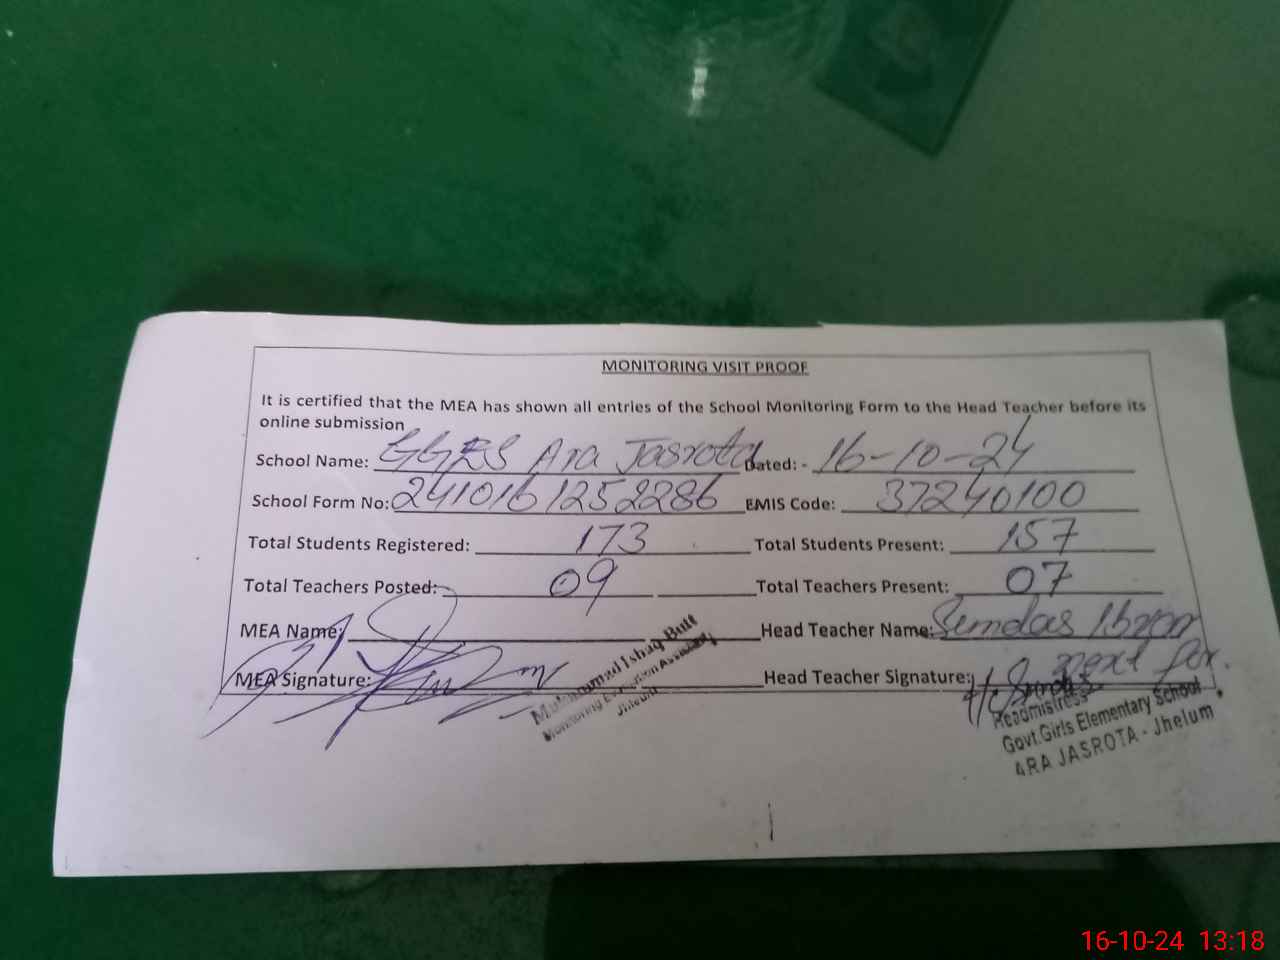 MONITORING VISIT PROOF
It is certified that the MEA has shown all entries of the School Monitoring Form to the Head Teacher before its
online submission
School Name: GGES Ara Jasrota Dated: - 16-10-24
School Form No: 241016125 2286 EMIS Code: 37240100
Total Students Registered: 173 Total Students Present: 157
Total Teachers Posted: 09 Total Teachers Present: 07
MEA Name: Head Teacher Name:
MEA Signature: Head Teacher Signature:
Muhammad Ishaq Butt
Monitoring Evaluation Assistant
Jhelum
Headmistress
Govt.Girls Elementary School
ARA JASROTA - Jhelum
16-10-24 13:18